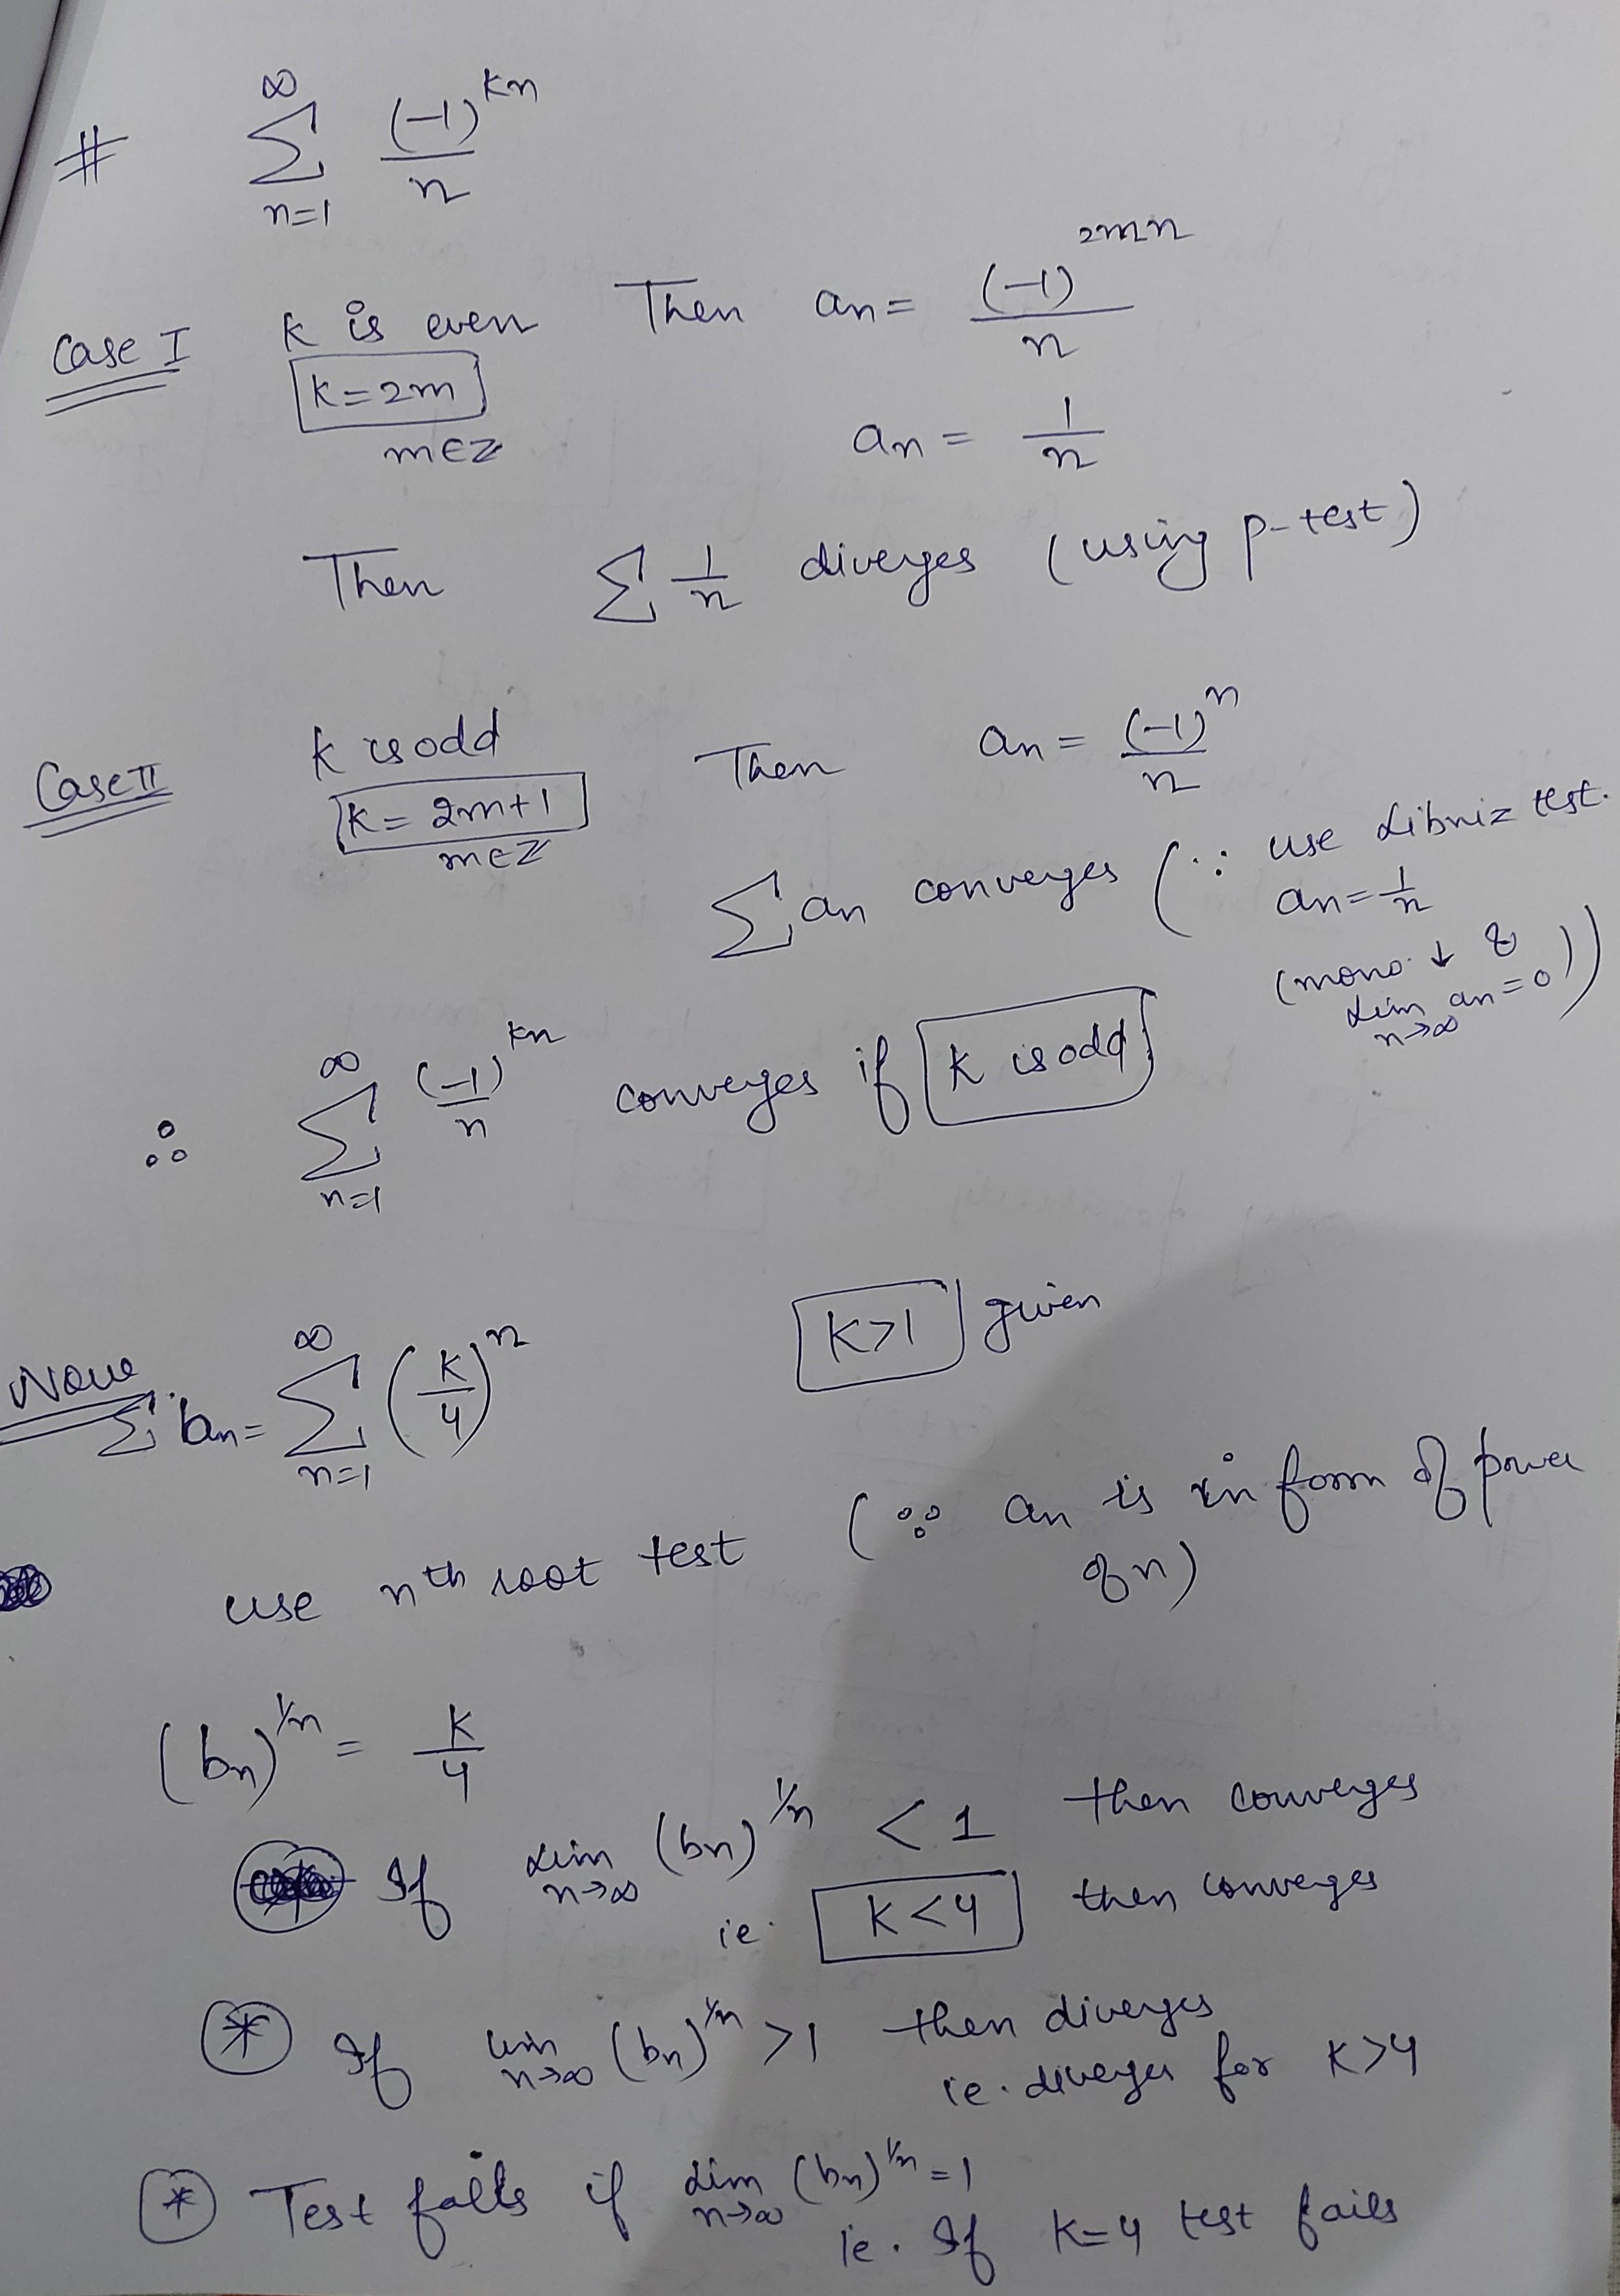 # ∞∑n=1 (-1)^kn / n
Case I k is even Then an = (-1)^2mn / n
k=2m
m∈Z an = 1/n
Then ∑ 1/n diverges (using p-test)
Case II k is odd Then an = (-1)^n / n
k= 2m+1
m∈Z
∑ an converges (∵ use Libniz test.
an = 1/n
(mono. ↓ &
lim n→∞ an = 0))
∴ ∞∑n=1 (-1)^kn / n converges if k is odd
k>1 given
Now
∑ bn = ∞∑n=1 (k/4)^n
use nth root test (∵ an is in form of power
of n)
(bn)^1/n = k/4
If lim n→∞ (bn)^1/n < 1 then converges
ie. k<4 then converges
* If lim n→∞ (bn)^1/n >1 then diverges
ie. diverges for k>4
* Test fails if lim n→∞ (bn)^1/n = 1
ie. If k=4 test fails